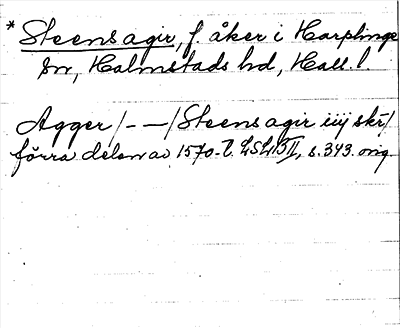 * Steensagir, f. åker i Harplinge
sn, Halmstads hd, Hall. l.
Agger /- —/ Steensagir iiij skr/
förra delen av 1570-t. LSLBII, s. 343. orig.